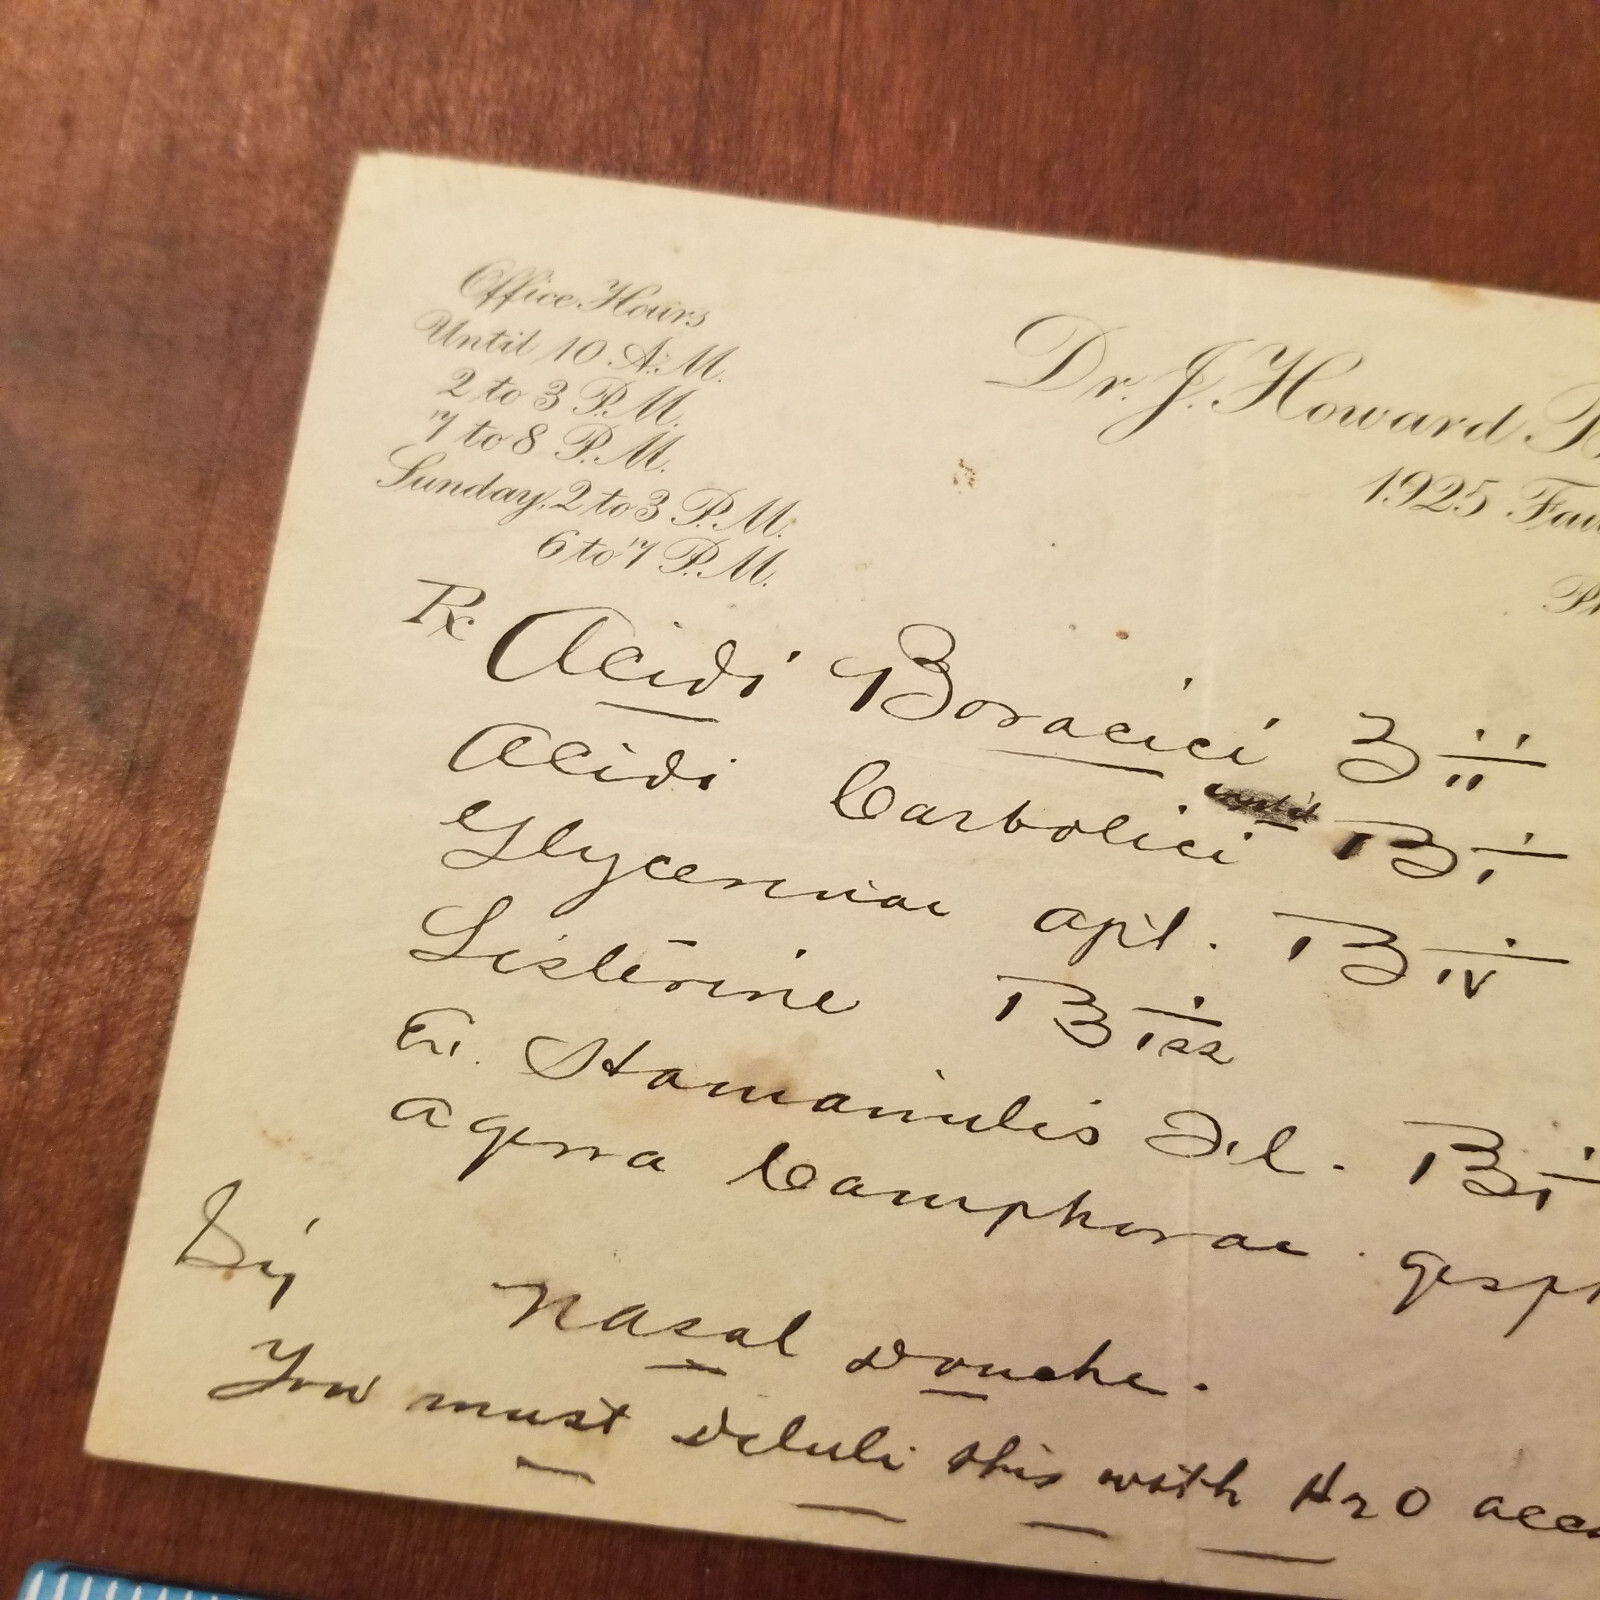 Office Hours
Until 10 A.M.
2 to 3 P.M.
7 to 8 P.M.
Sunday, 2 to 3 P.M.
6 to 7 P.M.
Dr. J. Howard
1925
Rx Acidi Boracici ʒ ii
Acidi Carbolici ʒ i
Glycerinae apt. ʒ iv
Listerine ʒ iss
Hamamelis Dil. ʒ i
Aqua Camphorae
Sig
Nasal Douche.
You must dilute this with H2O